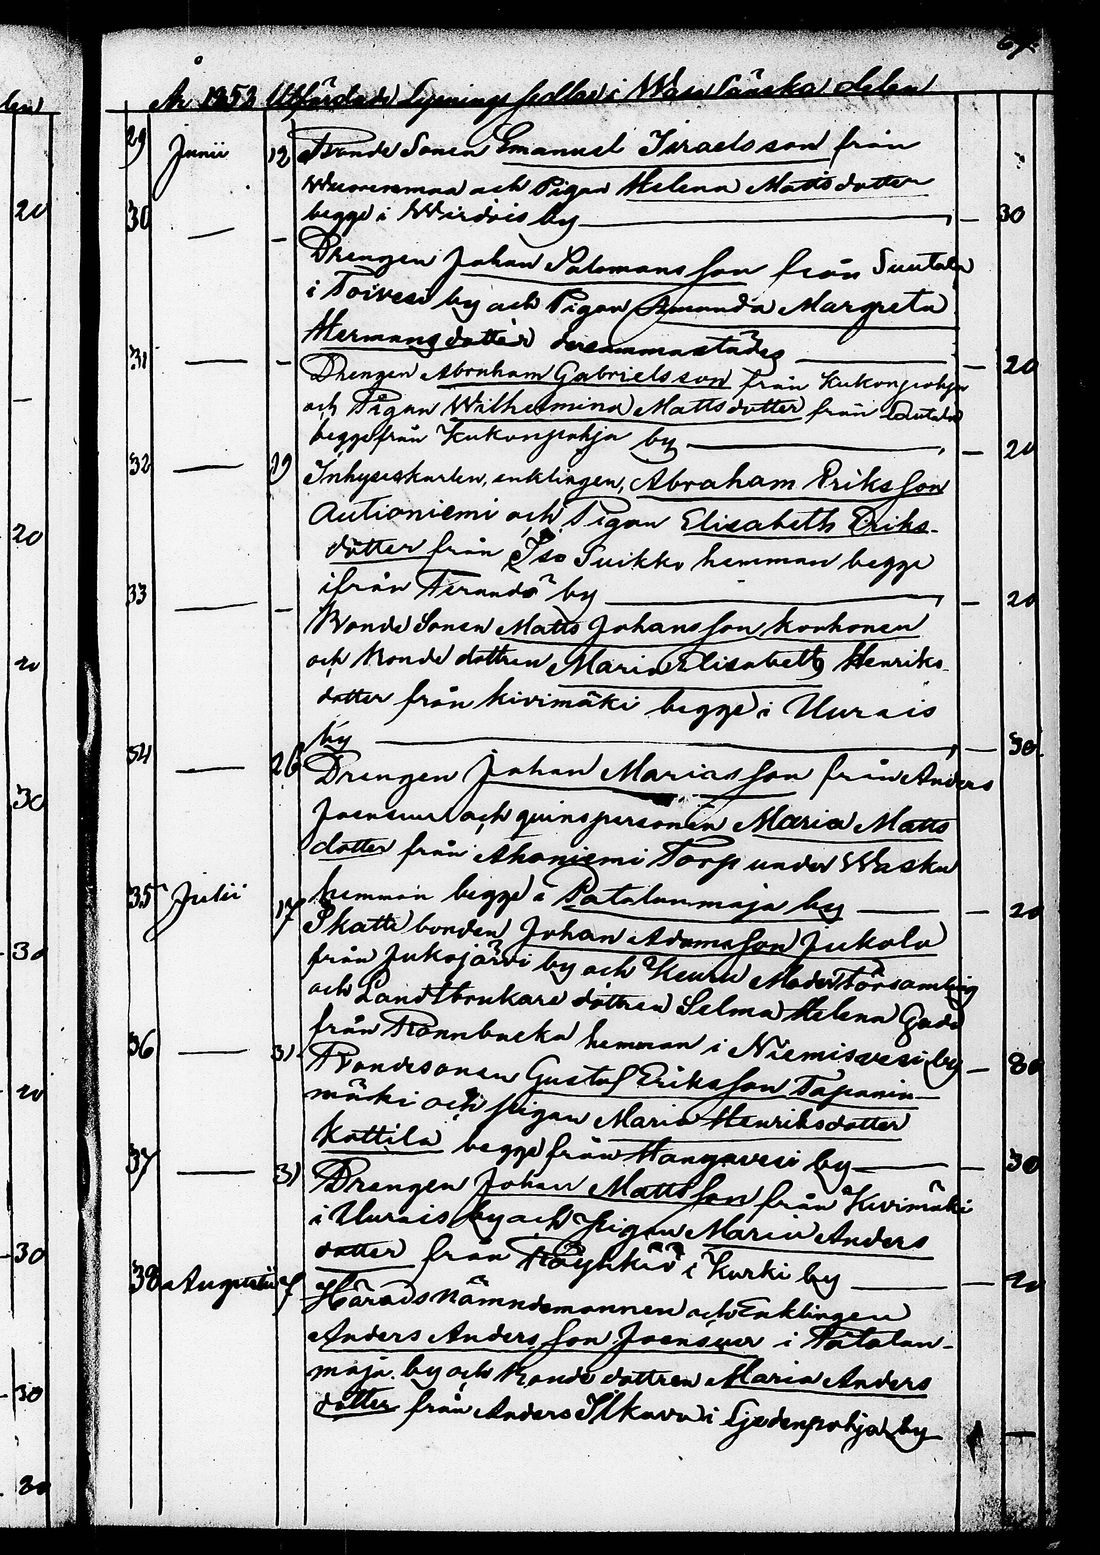 67.
År 1853 Utfärdade Lysnings Sedlar i Wasa Länska delen
29 Junii 12 Bonde Sonen Emanuel Israelsson från
Wuorenmaa och Pigan Helena Mattsdotter
30 begge i Wirdois by — 30
— Drengen Johan Salomonsson från Suutala
i Toivesi by och Pigan Amanda Margreta
Hermansdotter dersammastädes
31 — — 20
Drengen Abraham Gabrielsson från Kukonpohja
och Pigan Wilhelmina Mattsdotter från
begge från Kukonpohja by — 20
32 — 19 Inhyseskarlen, enklingen, Abraham Eriksson
Autioniemi och Pigan Elisabeth Eriks-
dotter från Iso Suikko hemman begge
33 — — ifrån by — 20
Bonde Sonen Matts Johansson Korhonen
och Bonde dottren Maria Elisabeth Henriks-
dotter från Kivimäki begge i Uurais
by — 30
34 — 26 Drengen Johan Mariasson från Anders
Joensuu och qvinspersonen Maria Matts
dotter från Ahoniemi Torp under Waska
35 Julii hemman begge i Patalanmaja by — 20
17 Skatte bonden Johan Adamsson Jukola
från Jukojärvi by och Keuru Moderförsamling
och Landtbrukare dottren Selma Helena Gadd
från Rönnbacka hemman i Niemisvesi by — 80
36 — 31 Bondesonen Gustaf Eriksson Tapanin-
mäki och pigan Maria Henriksdotter
Kattila begge från Hangavesi by — 30
37 — 31 Drengen Johan Mattsson från Kivimäki
i Uurais by och pigan Maria Anders
dotter från Röyhkiö i Kurki by — 20
38 Augustii 7 Härads Nämndemannen och Enklingen
Anders Andersson Joensuu i Patalan-
maja by och Bonde dottren Maria Anders
dotter från Anders i by —